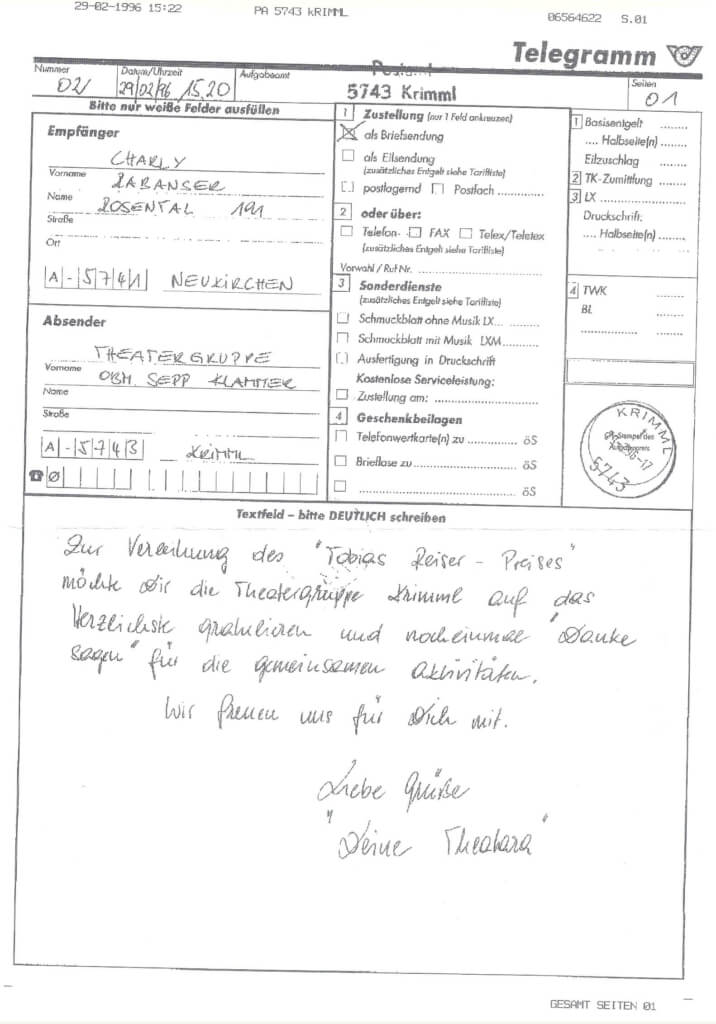 29-02-1996 15:22 PA 5743 kRIMML 06564622 S.01
Telegramm
Nummer Datum/Uhrzeit Aufgabeamt Postamt Seiten
02 29/02/96 15.20 5743 Krimml 01
Bitte nur weiße Felder ausfüllen
Empfänger
CHARLY
Vorname
RABANSER
Name
ROSENTAL 191
Straße
Ort
A-5741 NEUKIRCHEN
Absender
THEATERGRUPPE
Vorname
OBM. SEPP KLAMMER
Name
Straße
A-5743 KRIMML
Ø
1 Zustellung (nur 1 Feld ankreuzen)
als Briefsendung
als Eilsendung
(zusätzliches Entgelt siehe Tarifliste)
postlagernd Postfach
2 oder über:
Telefon FAX Telex/Teletex
(zusätzliches Entgelt siehe Tarifliste)
Vorwahl / Ruf Nr.
3 Sonderdienste
(zusätzliches Entgelt siehe Tarifliste)
Schmuckblatt ohne Musik LX...
Schmuckblatt mit Musik LXM
Ausfertigung in Druckschrift
Kostenlose Serviceleistung:
Zustellung am:
4 Geschenkbeilagen
Telefonwertkarte(n) zu öS
Brieflose zu öS
öS
1 Basisentgelt
.... Halbseite(n)
Eilzuschlag
2 TK-Zumittlung
3 LX
Druckschrift:
.... Halbseite(n)
4 TWK
BL
KRIMML
5743
Textfeld – bitte DEUTLICH schreiben
Zur Verleihung des "Tobias Reiser - Preises"
möchte Dir die Theatergruppe Krimml auf das
Herzlichste gratulieren und nocheinmal "Danke
sagen" für die gemeinsamen Aktivitäten.
Wir freuen uns für Dich mit.
Liebe Grüße
"Deine Theatara"
GESAMT SEITEN 01